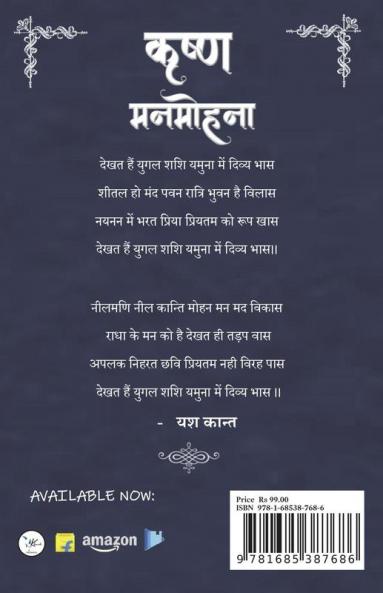 कृष्ण
मनमोहना
देखत हैं युगल शशि यमुना में दिव्य भास
शीतल हो मंद पवन रात्रि भुवन है विलास
नयनन में भरत प्रिया प्रियतम को रूप खास
देखत हैं युगल शशि यमुना में दिव्य भास॥
नीलमणि नील कान्ति मोहन मन मद विकास
राधा के मन को है देखत ही तड़प वास
अपलक निहरत छवि प्रियतम नही विरह पास
देखत हैं युगल शशि यमुना में दिव्य भास ॥
- यश कान्त
AVAILABLE NOW:
amazon
Price Rs 99.00
ISBN 978-1-68538-768-6
9 781685 387686